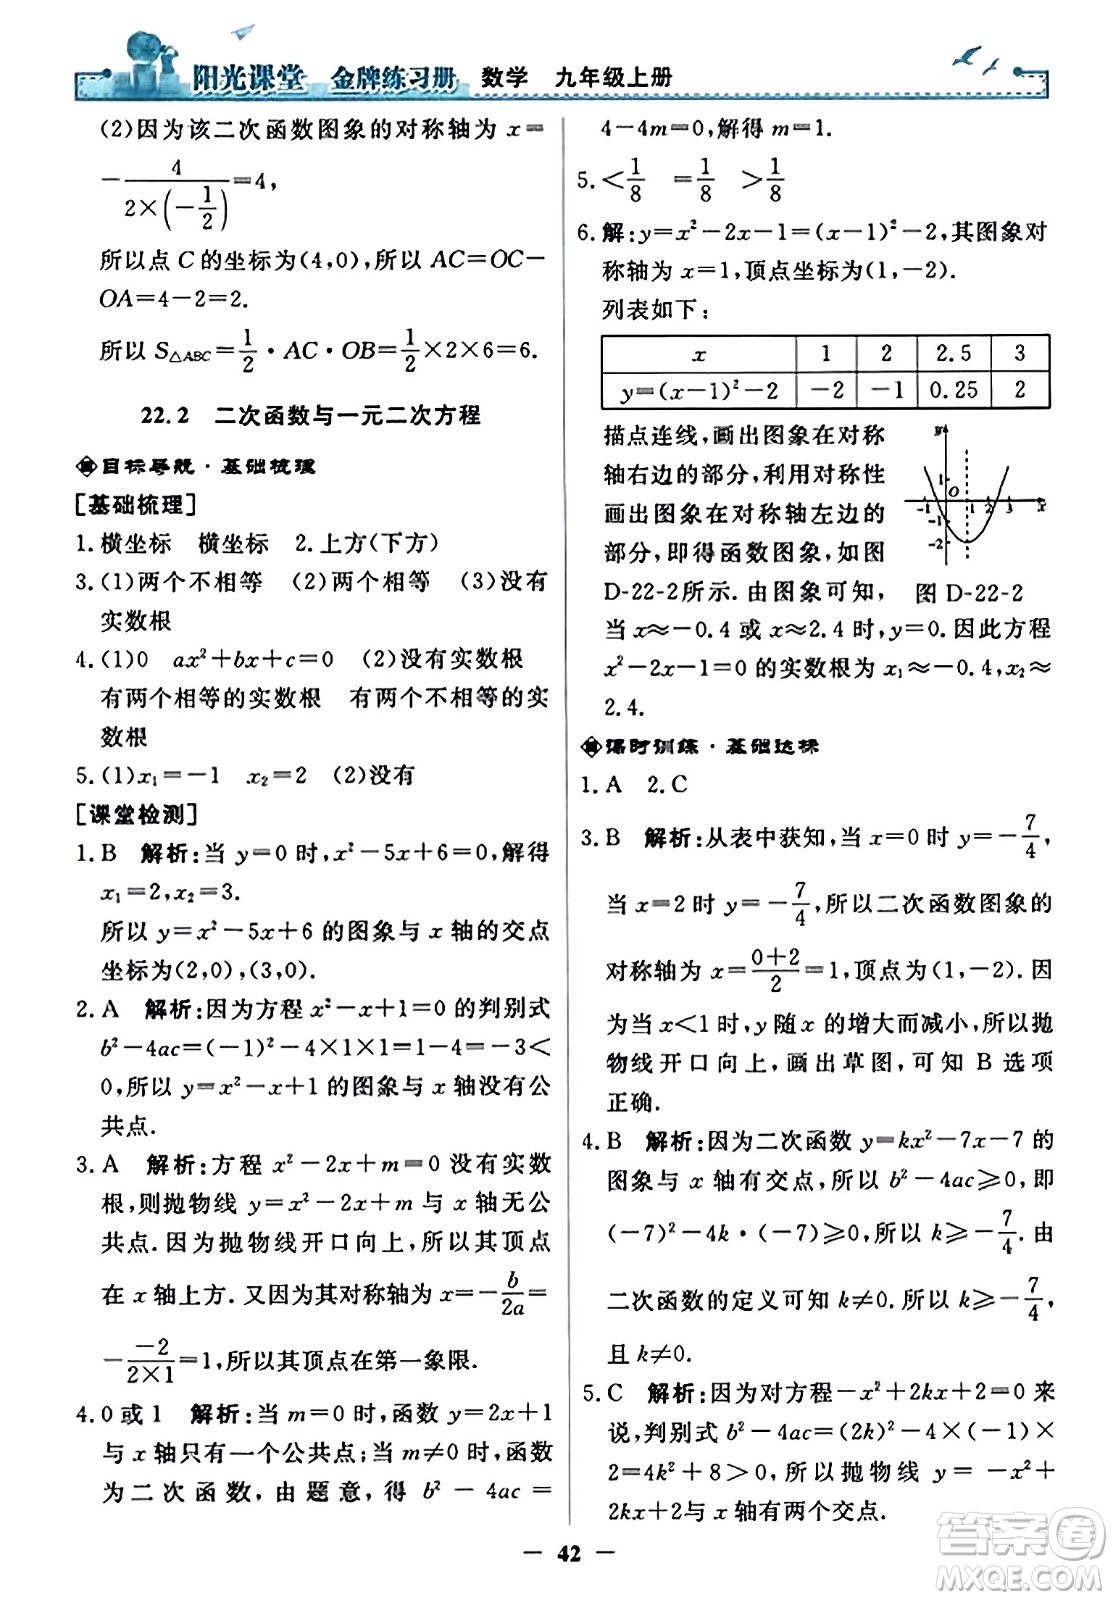 阳光课堂 金牌练习册 数学 九年级上册
(2)因为该二次函数图象的对称轴为 x=
-4/(2×(-1/2))=4,
所以点 C 的坐标为(4,0),所以 AC=OC-
OA=4-2=2.
所以 S△ABC=1/2·AC·OB=1/2×2×6=6.
22.2 二次函数与一元二次方程
目标导航·基础梳理
[基础梳理]
1.横坐标 横坐标 2.上方(下方)
3.(1)两个不相等 (2)两个相等 (3)没有
实数根
4.(1)0 ax²+bx+c=0 (2)没有实数根
有两个相等的实数根 有两个不相等的实
数根
5.(1)x₁=-1 x₂=2 (2)没有
[课堂检测]
1.B 解析:当 y=0 时,x²-5x+6=0,解得
x₁=2,x₂=3.
所以 y=x²-5x+6 的图象与 x 轴的交点
坐标为(2,0),(3,0).
2.A 解析:因为方程 x²-x+1=0 的判别式
b²-4ac=(-1)²-4×1×1=1-4=-3<
0,所以 y=x²-x+1 的图象与 x 轴没有公
共点.
3.A 解析:方程 x²-2x+m=0 没有实数
根,则抛物线 y=x²-2x+m 与 x 轴无公
共点.因为抛物线开口向上,所以其顶点
在 x 轴上方.又因为其对称轴为 x=-b/2a=
--2/(2×1)=1,所以其顶点在第一象限.
4.0 或 1 解析:当 m=0 时,函数 y=2x+1
与 x 轴只有一个公共点;当 m≠0 时,函数
为二次函数,由题意,得 b²-4ac=
4-4m=0,解得 m=1.
5.<1/8 =1/8 >1/8
6.解:y=x²-2x-1=(x-1)²-2,其图象对
称轴为 x=1,顶点坐标为(1,-2).
列表如下:
x 1 2 2.5 3
y=(x-1)²-2 -2 -1 0.25 2
描点连线,画出图象在对称
轴右边的部分,利用对称性
画出图象在对称轴左边的
部分,即得函数图象,如图
D-22-2所示.由图象可知,
y
1
O
-1 1 2 3 x
-1
-2
图 D-22-2
当 x≈-0.4 或 x≈2.4 时,y=0.因此方程
x²-2x-1=0 的实数根为 x₁≈-0.4,x₂≈
2.4.
课时训练·基础达标
1.A 2.C
3.B 解析:从表中获知,当 x=0 时 y=-7/4,
当 x=2 时 y=-7/4,所以二次函数图象的
对称轴为 x=(0+2)/2=1,顶点为(1,-2).因
为当 x<1 时,y 随 x 的增大而减小,所以抛
物线开口向上,画出草图,可知 B 选项
正确.
4.B 解析:因为二次函数 y=kx²-7x-7 的
图象与 x 轴有交点,所以 b²-4ac≥0,即
(-7)²-4k·(-7)≥0,所以 k≥-7/4.由
二次函数的定义可知 k≠0.所以 k≥-7/4,
且 k≠0.
5.C 解析:因为对方程-x²+2kx+2=0 来
说,判别式 b²-4ac=(2k)²-4×(-1)×
2=4k²+8>0,所以抛物线 y=-x²+
2kx+2与 x 轴有两个交点.
— 42 —
答案圈
MXQE.COM